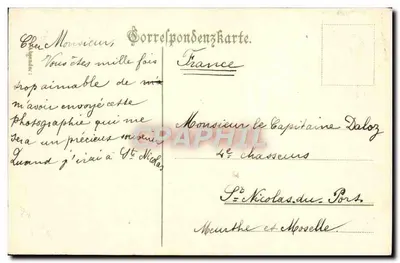 Correspondenzkarte.
Cher Monsieur
Vous êtes mille fois
trop aimable de
m'avoir envoyé cette
photographie qui me
sera un précieux souvenir
Quand j'irai à St Nicolas
France
Monsieur le Capitaine Daloz
4e chasseurs
St. Nicolas. du. Port.
Meurthe et Moselle.
CPAPHIL